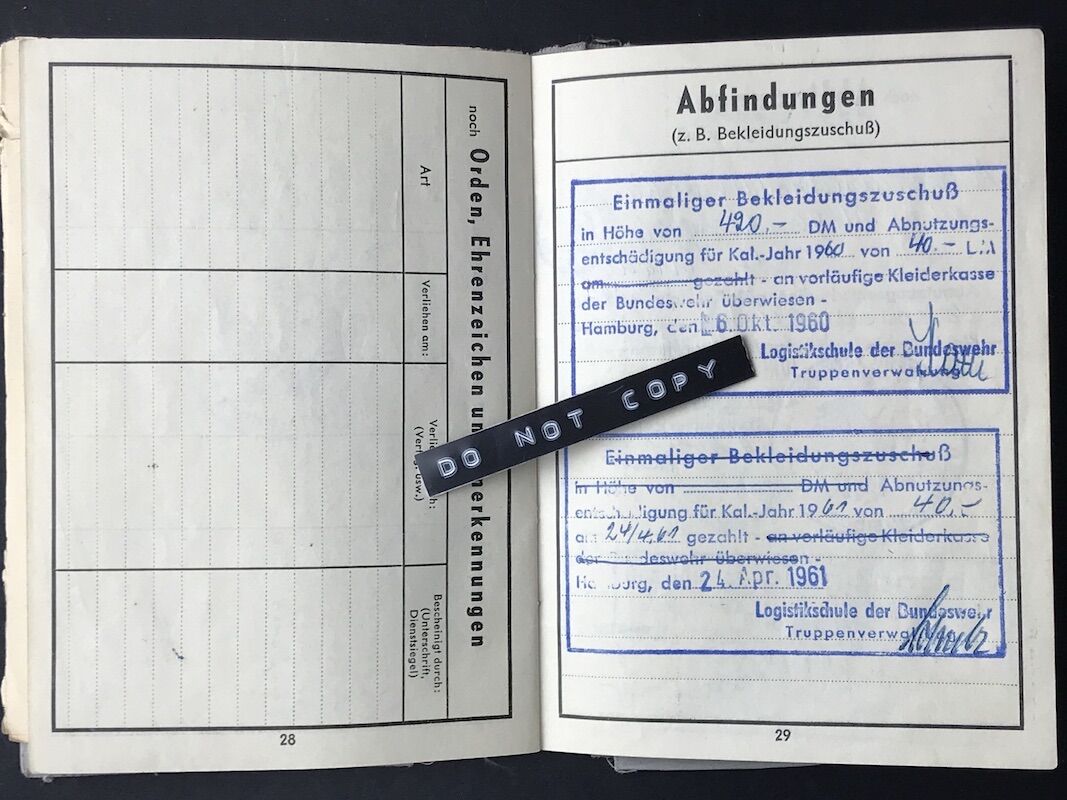 noch Orden, Ehrenzeichen un nerkennungen
Art
Verliehen am:
Bescheinigt durch:
(Unterschrift,
Dienstsiegel)
28
DO NOT COPY
Abfindungen
(z. B. Bekleidungszuschuß)
Einmaliger Bekleidungszuschuß
in Höhe von 420,- DM und Abnutzungs-
entschädigung für Kal.-Jahr 1960 von 40.-
am gezahlt - an vorläufige Kleiderkasse
der Bundeswehr überwiesen -
Hamburg, den 6. Okt. 1960
Logistikschule der Bundeswehr
Truppenverwaltung
Einmaliger Bekleidungszuschuß
in Höhe von DM und Abnutzungs-
entschädigung für Kal.-Jahr 1961 von 40,-
am 24/4.61 gezahlt - an vorläufige Kleiderkasse
der Bundeswehr überwiesen -
Hamburg, den 24. Apr. 1961
Logistikschule der Bundeswehr
Truppenverwaltung
29